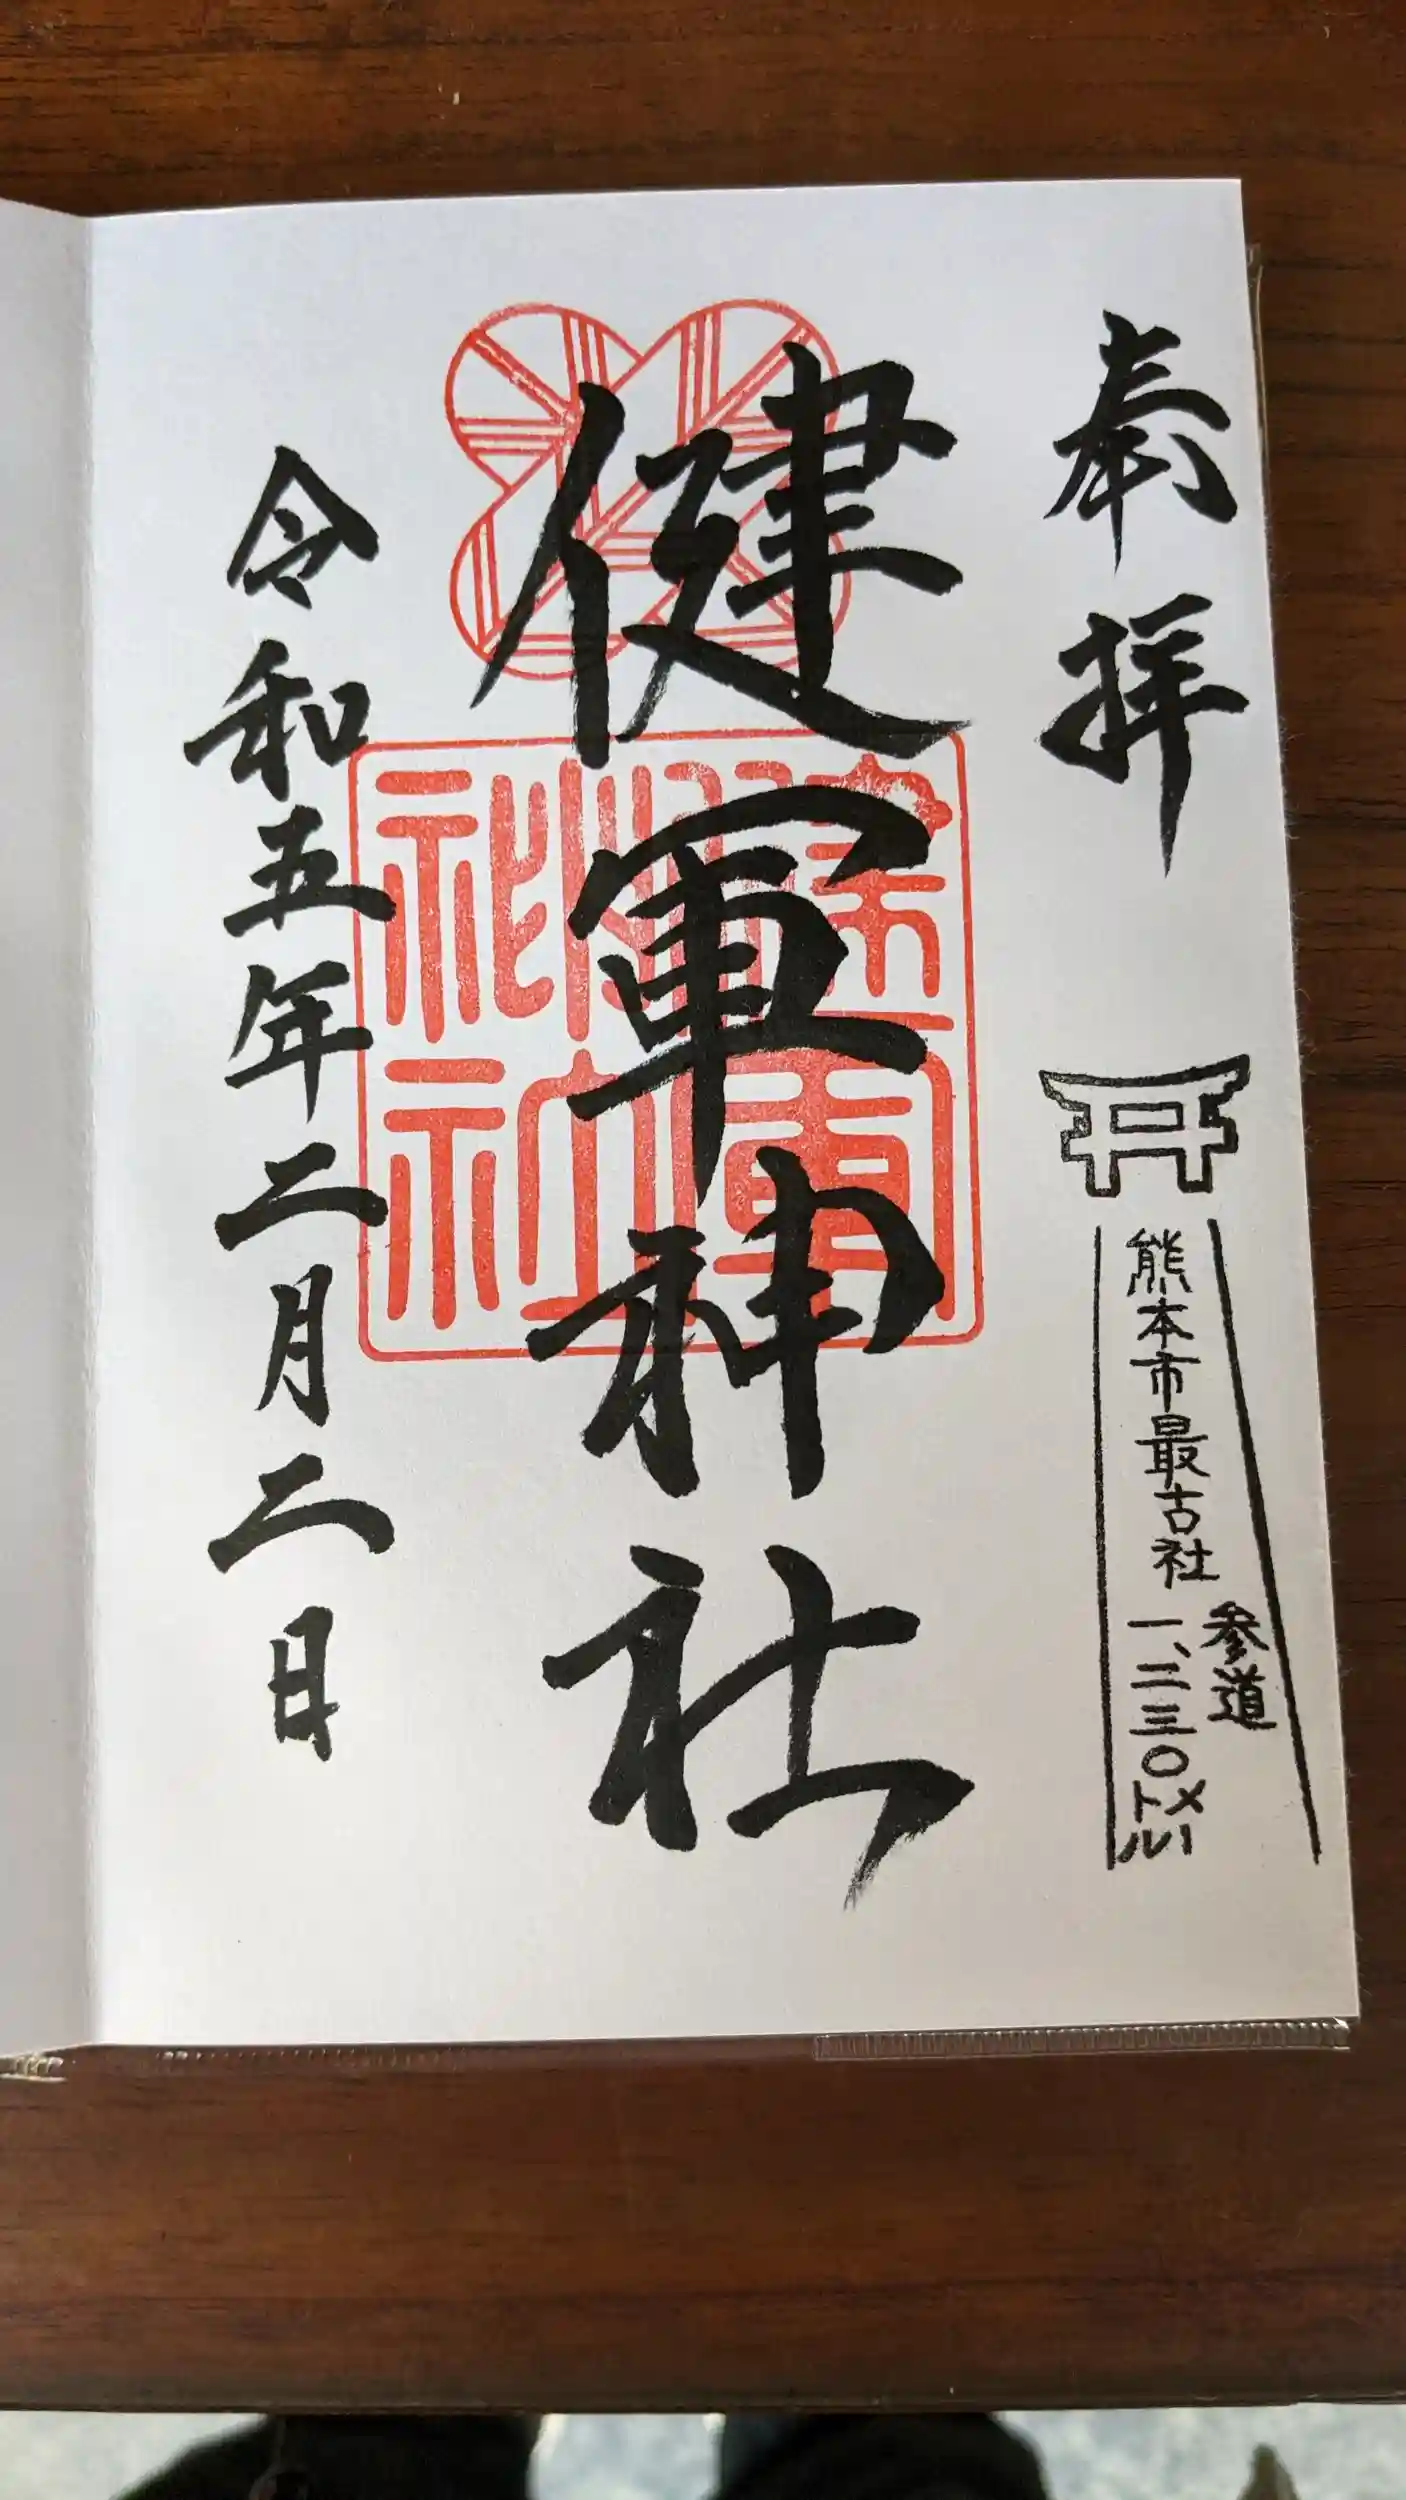 奉拝
熊本市最古社
参道
一、二三〇メートル
健軍神社
健軍
神社
令和五年二月二日